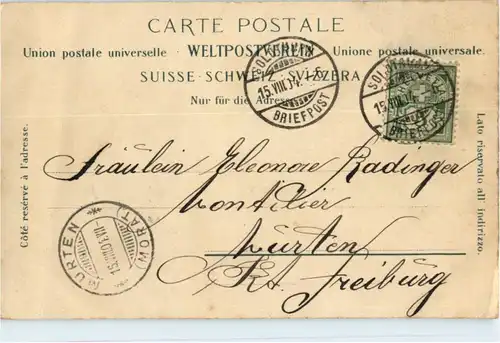 CARTE POSTALE
Union postale universelle - WELTPOSTVEREIN - Unione postale universale.
SUISSE · SCHWEIZ · SVIZZERA
Nur für die Adresse
SOLOTHURN
15.VIII.04
BRIEFPOST
SOLOTHURN
15.VIII.04
BRIEFPOST
Côté reservé à l'adresse.
Lato riservato all' indirizzo.
Fräulein Eleonore Radinger
Montilier
Murten
Kt. Freiburg
MURTEN
(MORAT)